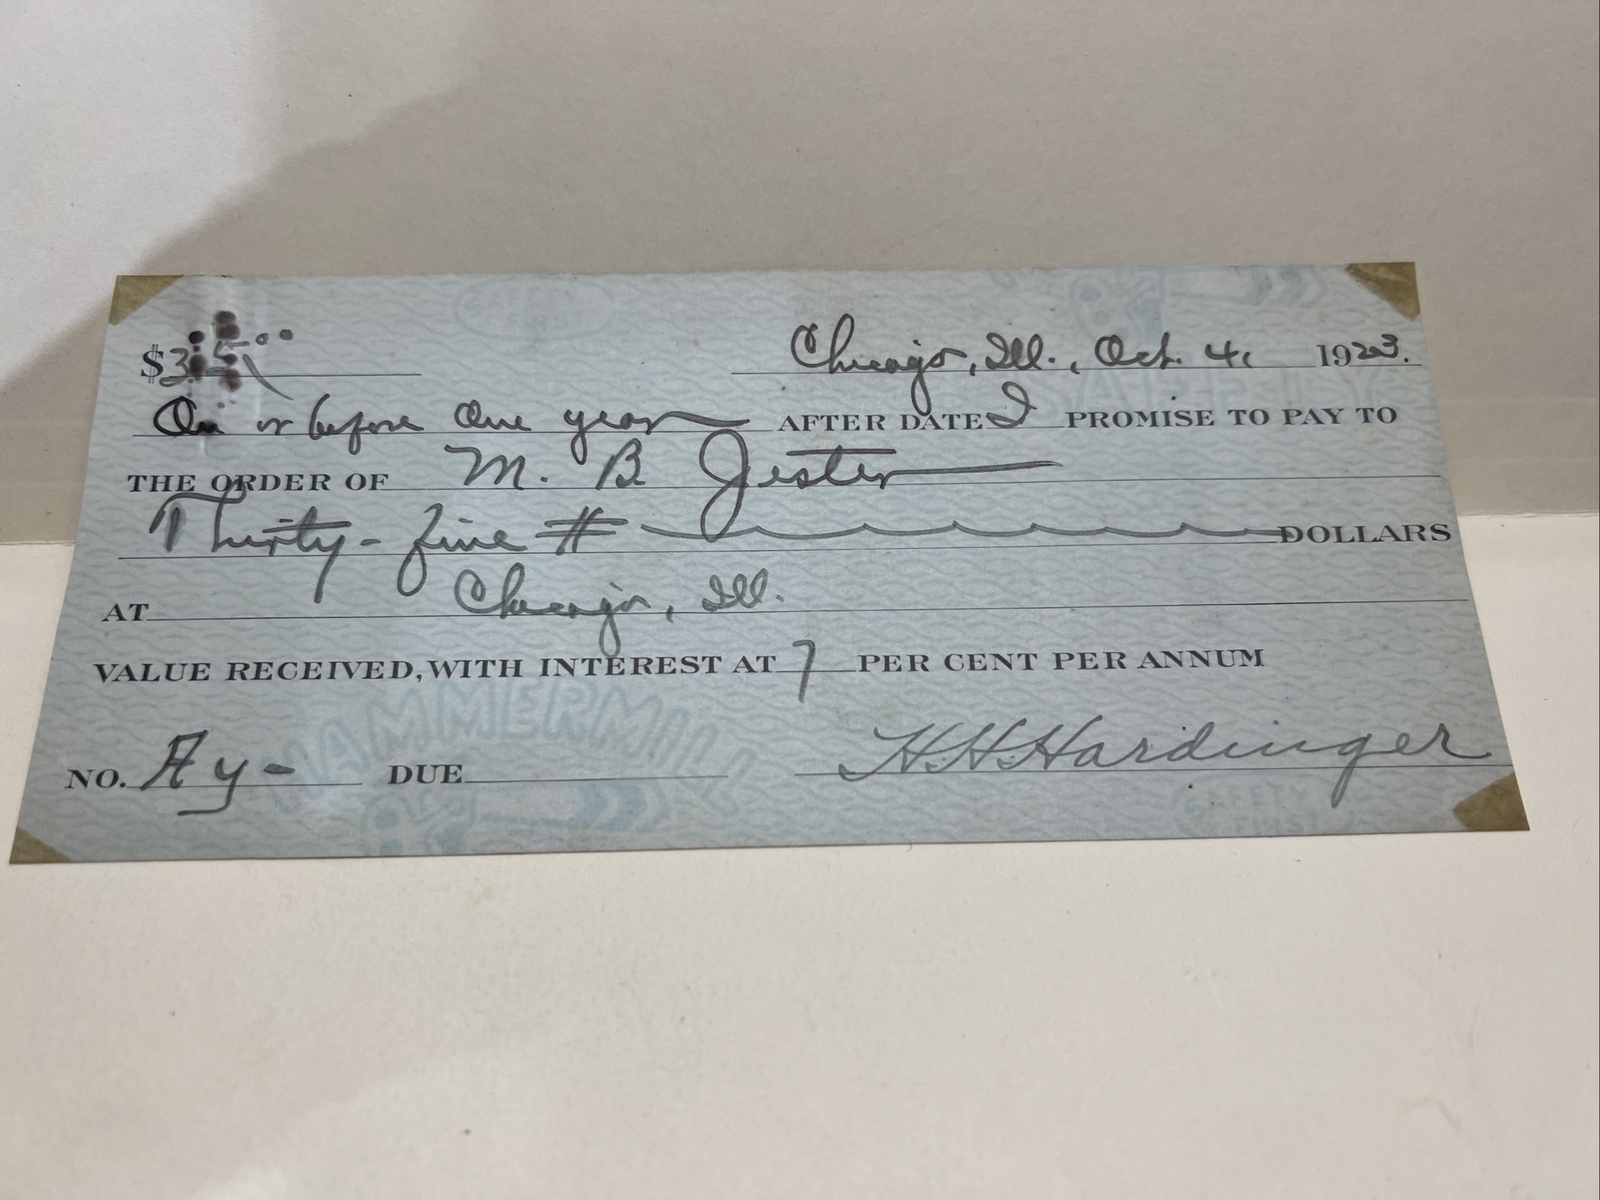 $35.00 Chicago, Ill., Oct. 4, 1923.
On or before One year AFTER DATE I PROMISE TO PAY TO
THE ORDER OF M. B Jester
Thirty-five # DOLLARS
AT Chicago, Ill.
VALUE RECEIVED, WITH INTEREST AT 7 PER CENT PER ANNUM
HAMMERMILL
NO. DUE H.H. Hardinger